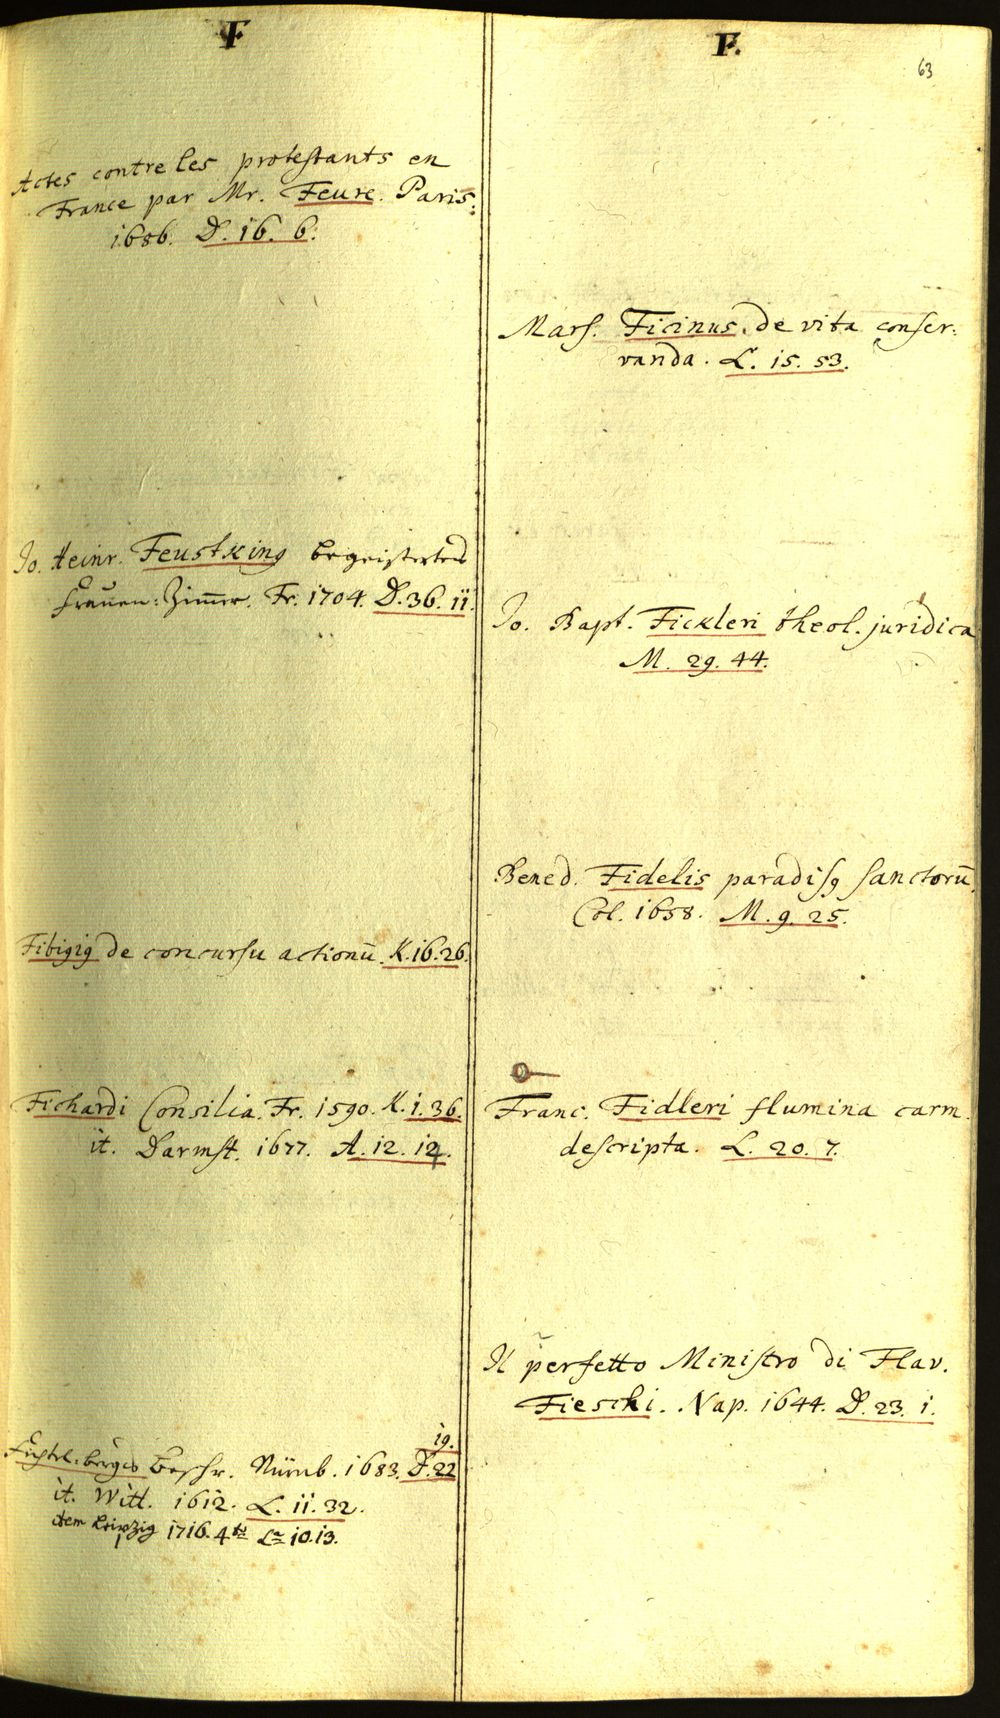 F
Actes contre les protestants en
France par Mr. Feure. Paris.
1686. D. 16. 6.
Jo. Heinr. Feustking begeistertes
Frauen-Zimmer. Fr. 1704. D. 36. 11.
Fibigig de concursu actionū. K. 16. 26.
Fichardi Consilia. Fr. 1590. K. 1. 36.
it. Darmst. 1677. A. 12. 12.
19.
Fichtel-berges Beschr. Nürnb. 1683. D. 22
it. Witt. 1612. L. 11. 32.
item Leipzig 1716. 4to La 10. 13.
F.
63
Mars. Ficinus. de vita conser:
vanda. L. 15. 53.
Jo. Bapt. Fickleri theol. juridica
M. 29. 44.
Bened. Fidelis paradisq sanctorū.
Col. 1658. M. 9. 25.
Franc. Fidleri flumina carm.
descripta. L. 20. 7.
Il perfetto Ministro di Flav.
Fieschi. Nap. 1644. D. 23. 1.